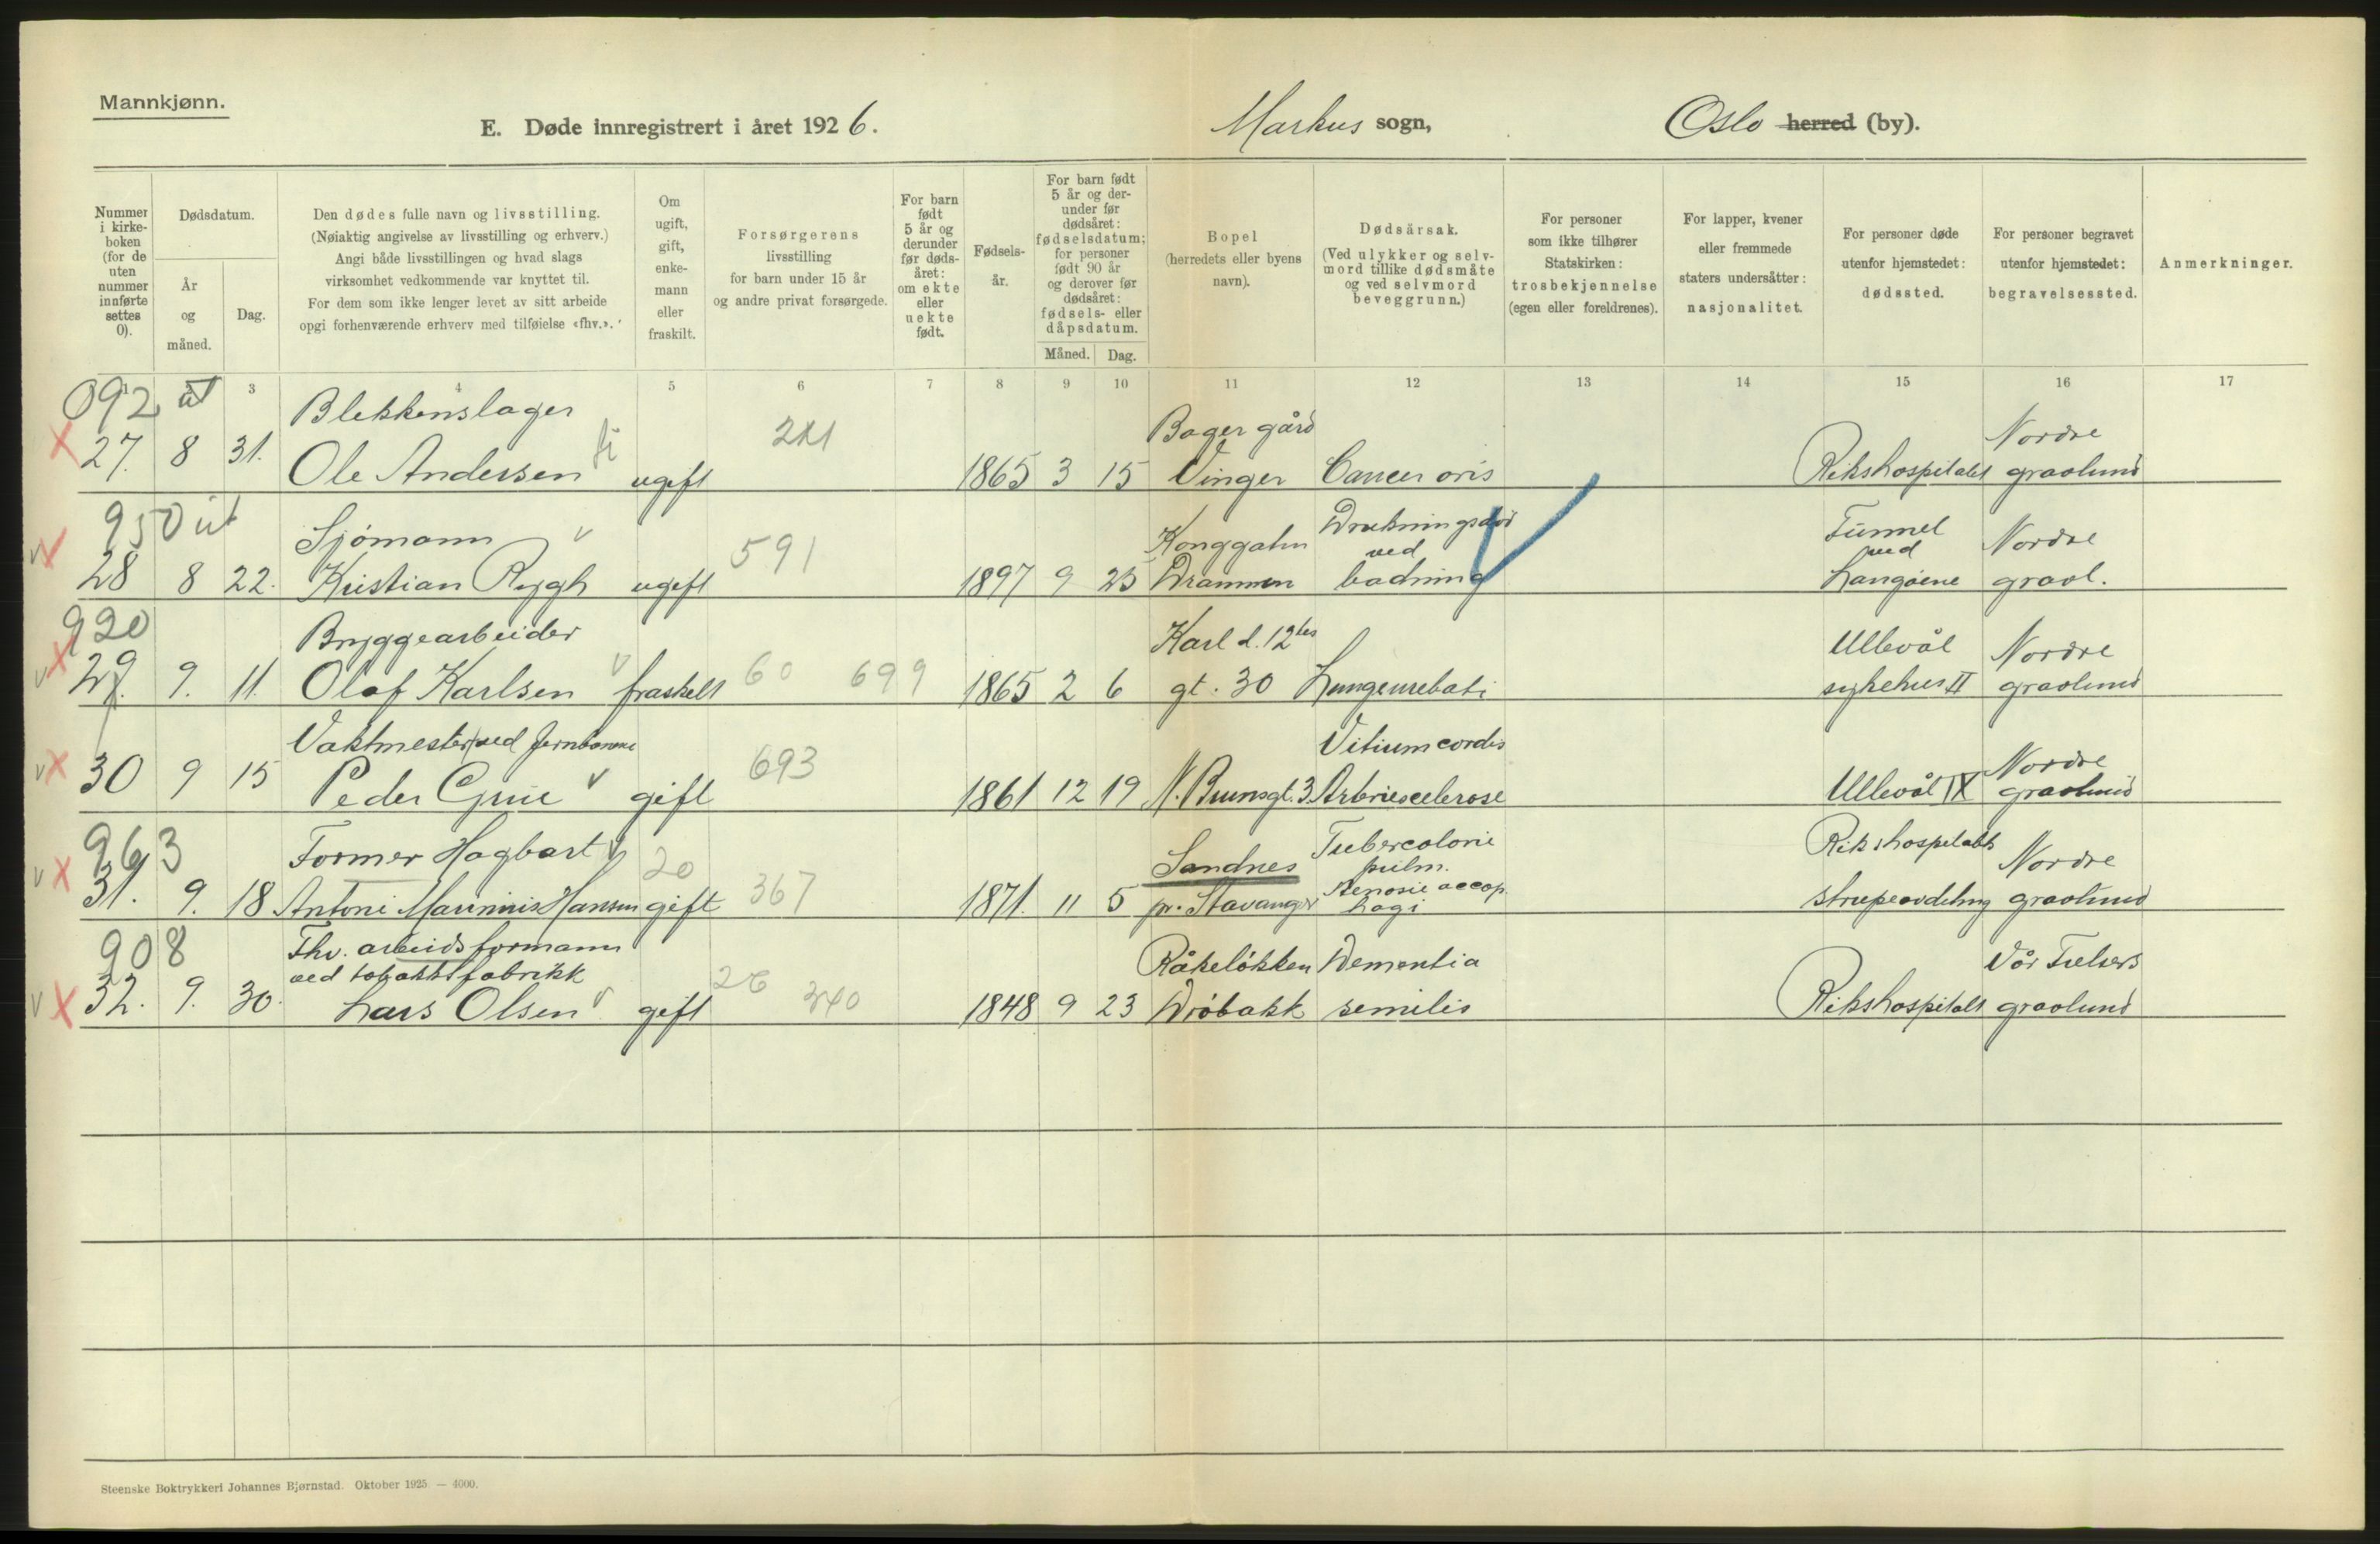 Mannkjønn.
E. Døde innregistrert i året 1926. Markus sogn, Oslo herred (by).
Nummer i kirke-boken (for de uten nummer innførte settes 0).
Dødsdatum.
År og måned.
Dag.
Den dødes fulle navn og livsstilling.
(Nøiaktig angivelse av livsstilling og erhverv.)
Angi både livsstillingen og hvad slags
virksomhet vedkommende var knyttet til.
For dem som ikke lenger levet av sitt arbeide
opgi forhenværende erhverv med tilføielse «fhv.».
Om ugift, gift, enke-mann eller fraskilt.
Forsørgerens
livsstilling
for barn under 15 år
og andre privat forsørgede.
For barn født 5 år og derunder før døds-året: om ekte eller uekte født.
Fødsels-år.
For barn født 5 år og der-under før dødsåret: fødselsdatum; for personer født 90 år og derover før dødsåret: fødsels- eller dåpsdatum.
Måned. Dag.
Bopel
(herredets eller byens
navn).
Dødsårsak.
(Ved ulykker og selv-
mord tillike dødsmåte
og ved selvmord
beveggrunn.)
For personer
som ikke tilhører
Statskirken:
trosbekjennelse
(egen eller foreldrenes).
For lapper, kvener
eller fremmede
staters undersåtter:
nasjonalitet.
For personer døde
utenfor hjemstedet:
dødssted.
For personer begravet
utenfor hjemstedet:
begravelsessted.
Anmerkninger.
1 3 4 5 6 7 8 9 10 11 12 13 14 15 16 17
092 ut Blekkenslager 211 Bager gård Nordre
27. 8 31. Ole Andersen ugift 1865 3 15 Vinger Cancer oris Rikshospitalet gravlund
950 ut Sjømann 591 Konggatın Drukningsdød Tunnel Nordre
ved ved
28 8 22. Kristian Rygh ugift 1897 9 25 Drammen badning Langøene gravl.
920 Bryggearbeider Karl d. 12tes Ullevål Nordre
29. 9. 11. Olaf Karlsen fraskelt 60 699 1865 2 6 gt. 30 Lungeurebati sykehus II gravlund
Vaktmester ved Jernbanene 693 Vitium cordis Nordre
30 9 15 Peder Grue gift 1861 12 19 N. Brunsgt. 3 Arteriescelerose Ullevål IX gravlund
963 Former Hagbart 20 367 Sandnes Tubercolorie pulm. Rikshospitalets Nordre
31. 9. 18 Antoni Marinius Hansen gift 1871. 11 5 pr. Stavanger Stenosie oecop. hagi strupeavdeling gravlund
908 Fhv. arbeidsformann Råkeløkken Dementia Vår Frelsers
ved tobakksfabrikk 26 340
32. 9. 30. Lars Olsen gift 1848 9 23 Drøbakk semilis Rikshospitalt gravlund
Steenske Boktrykkeri Johannes Bjørnstad. Oktober 1925 — 4000.